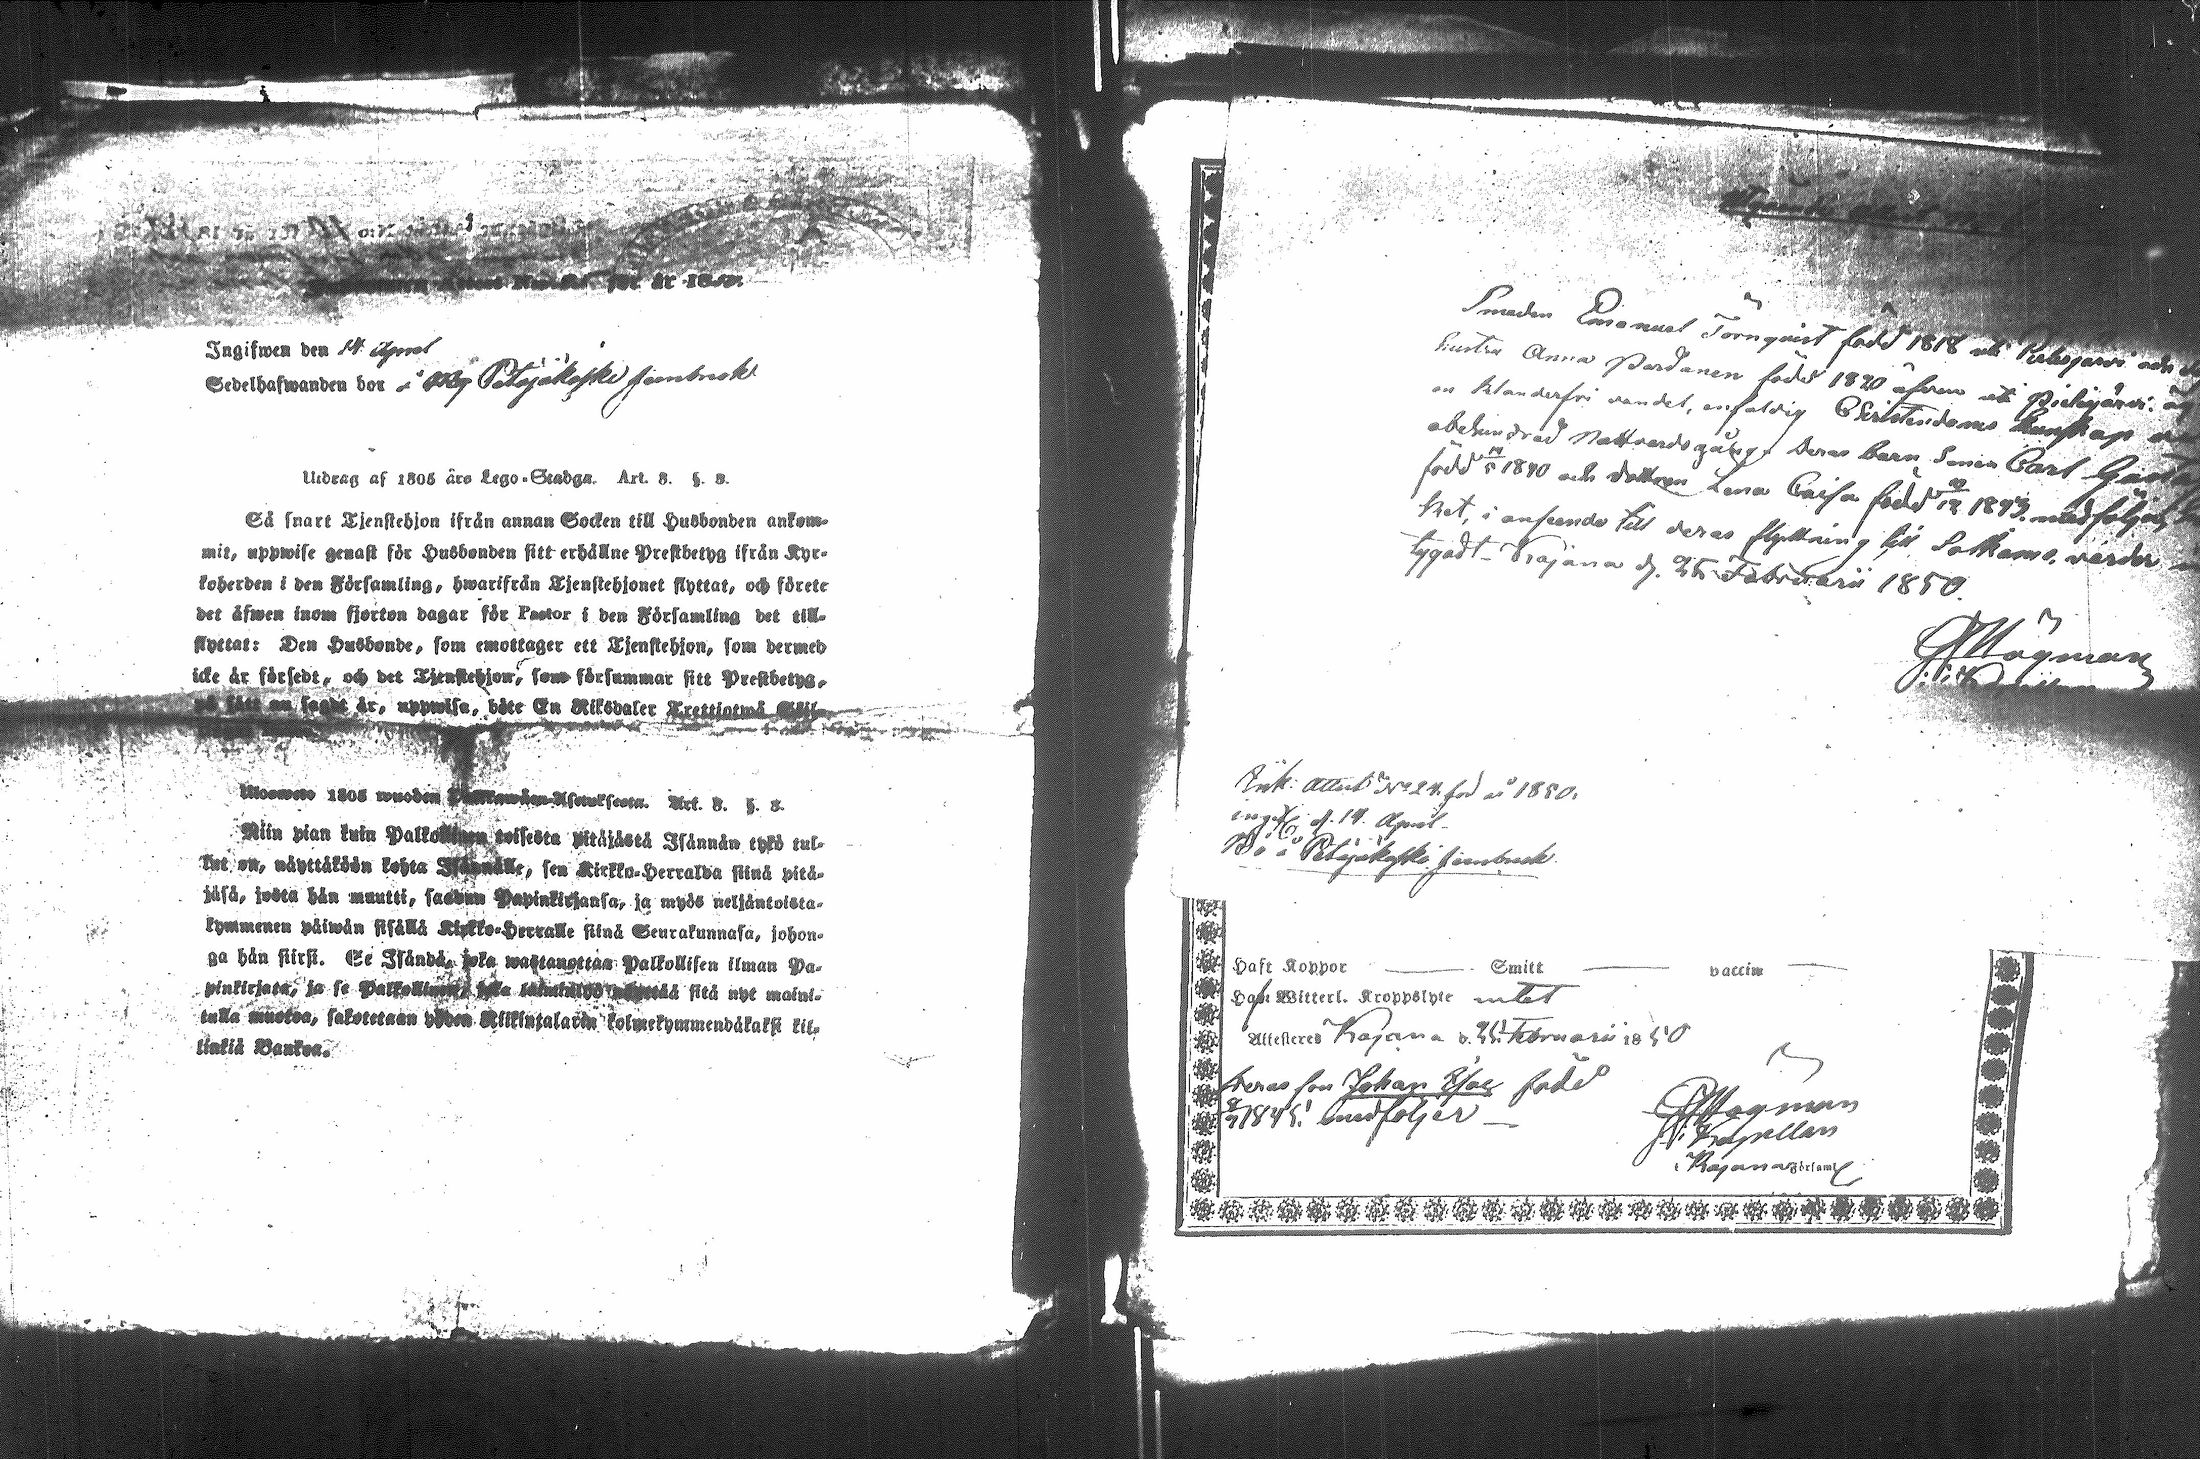 för år 1850.
Ingifwen den 14 April
Sedelhafwanden bor i Petäjäkoski Jernbruk
Utdrag af 1805 års Lego-Stadga. Art. 3. §. 8.
Så snart Tjenstehjon ifrån annan Socken till Husbonden ankom-
mit, uppwise genast för Husbonden sitt erhållne Prestbetyg ifrån Kyr-
koherden i den Församling, hwarifrån Tjenstehjonet flyttat, och förete
det äfwen inom fjorton dagar för Pastor i den Församling det till-
flyttat: Den Husbonde, som emottager ett Tjenstehjon, som dermed
icke är försedt, och det Tjenstehjon, som försummar sitt Prestbetyg,
på sätt nu sagdt är, uppwisa, böte En Riksdaler Trettiotwå Skil-
1805 wuoden Palkkawäen-Asetuksesta. Art. 3. §. 8.
Niin pian kuin Palkollinen toisesta pitäjästä Isännän tykö tul-
lut on, näyttäköön kohta Isännälle, sen Kirkko-Herralda siinä pitä-
jäsä, josta hän muutti, saadun Papinkirjansa, ja myös neljäntoista-
kymmenen päiwän sisällä Kirkko-Herralle siinä Seurakunnasa, johon-
ga hän siirsi. Se Isändä, joka wastanottaa Palkollisen ilman Pa-
pinkirjata, ja se Palkollinen, joka näyttää sitä nyt maini-
tulla muotoa, sakotetaan yhden Riikintalarin kolmekymmendäkaksi kil-
linkiä Bankoa.
Smeden Emanuel Törnqvist född 1818 uti Pielisjärvi och
hustru Anna Pardanen född 1820 äfven uti Pielisjärvi. äg
en klanderfri vandel, enfaldig Christendoms kunskap
obehindrad Nattvardsgång. Deras barn Sonen Carl Gusta
född 1840 och dottren Lena Caisa född 1843. medfölja,
ket, i anseende till deras flyttning till Sotkamo, varder
tygadt. Kajana d. 25 Februarii 1850.
Högman
Ink: Attest No 24. för år 1850.
ingif. d. 14. April.
Bo i Petäjäkoski Jernbruk.
Haft Koppor — Smitt — vaccin —
Haf. Witterl. Kroppslyte intet
Attesteres Kajana d. 25 Februarii 1850
Deras son Johan Isac född
1845. medföljer —
Högman
Kapellan
i Kajana Församl